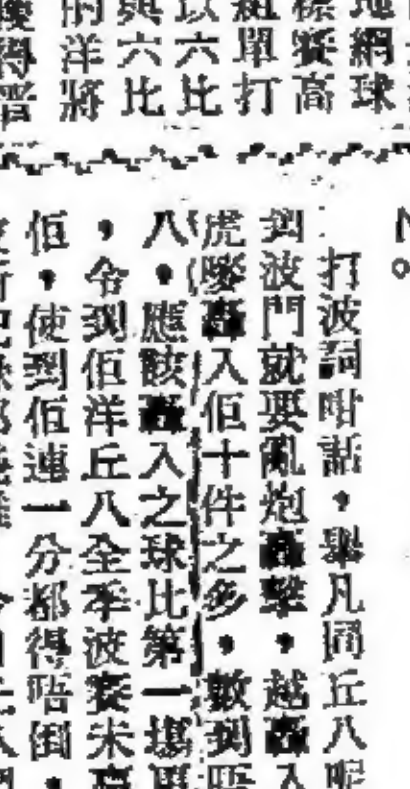 地網球
標賽高
組單打
以六比
與六比
的洋將
得普
打波詞咁話，舉凡同丘八呢
到波門就要亂炮轟擊，越轟入
虎嘜轟入佢十件之多，數到唔
八，應該轟入之球比第一場
，令到佢洋丘八全季波賽未
佢，使到佢連一分都得唔倒，